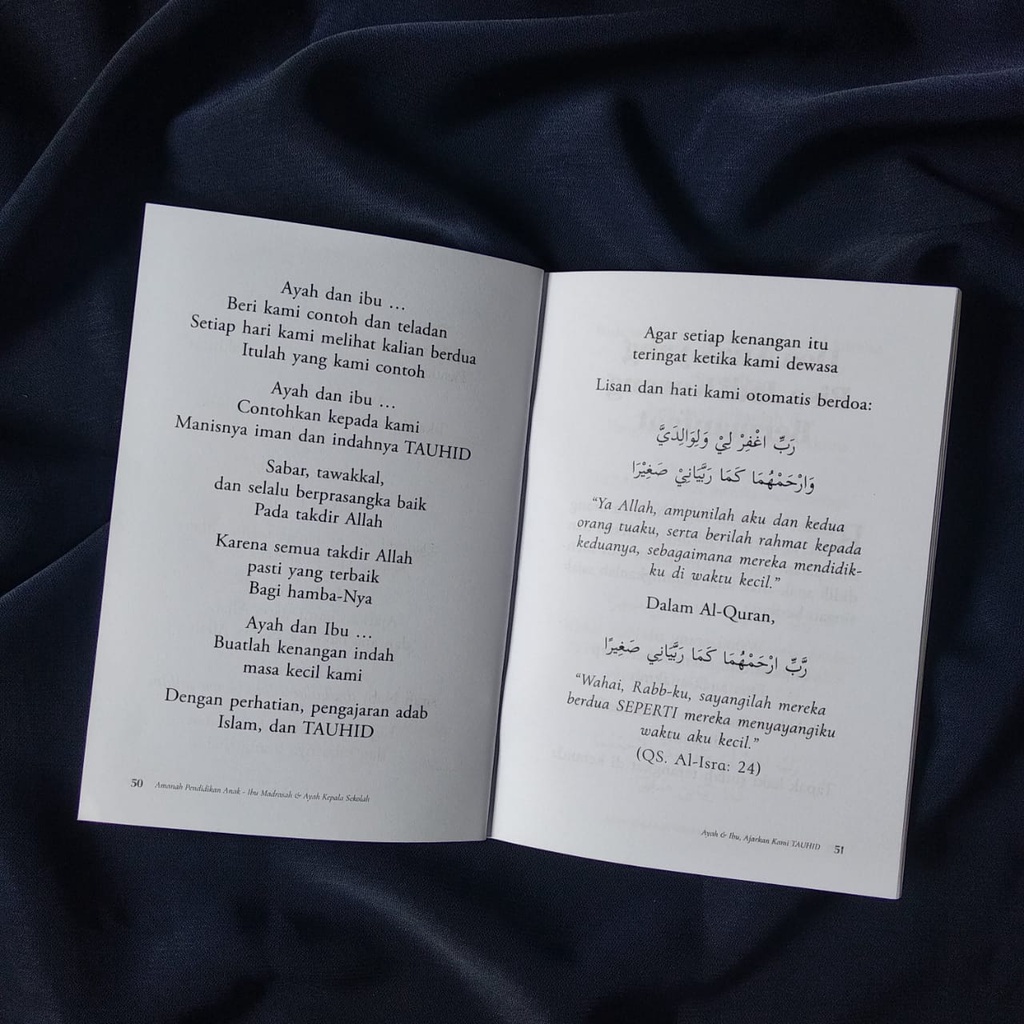 Ayah dan ibu …
Beri kami contoh dan teladan
Setiap hari kami melihat kalian berdua
Itulah yang kami contoh
Ayah dan ibu …
Contohkan kepada kami
Manisnya iman dan indahnya TAUHID
Sabar, tawakkal,
dan selalu berprasangka baik
Pada takdir Allah
Karena semua takdir Allah
pasti yang terbaik
Bagi hamba-Nya
Ayah dan Ibu …
Buatlah kenangan indah
masa kecil kami
Dengan perhatian, pengajaran adab
Islam, dan TAUHID
50 Amanah Pendidikan Anak - Ibu Madrasah & Ayah Kepala Sekolah
Agar setiap kenangan itu
teringat ketika kami dewasa
Lisan dan hati kami otomatis berdoa:
رَبِّ اغْفِرْ لِيْ وَلِوَالِدَيَّ
وَارْحَمْهُمَا كَمَا رَبَّيَانِيْ صَغِيْرَا
“Ya Allah, ampunilah aku dan kedua
orang tuaku, serta berilah rahmat kepada
keduanya, sebagaimana mereka mendidik-
ku di waktu kecil.”
Dalam Al-Quran,
رَّبِّ ارْحَمْهُمَا كَمَا رَبَّيَانِي صَغِيرًا
“Wahai, Rabb-ku, sayangilah mereka
berdua SEPERTI mereka menyayangiku
waktu aku kecil.”
(QS. Al-Isra: 24)
Ayah & Ibu, Ajarkan Kami TAUHID 51